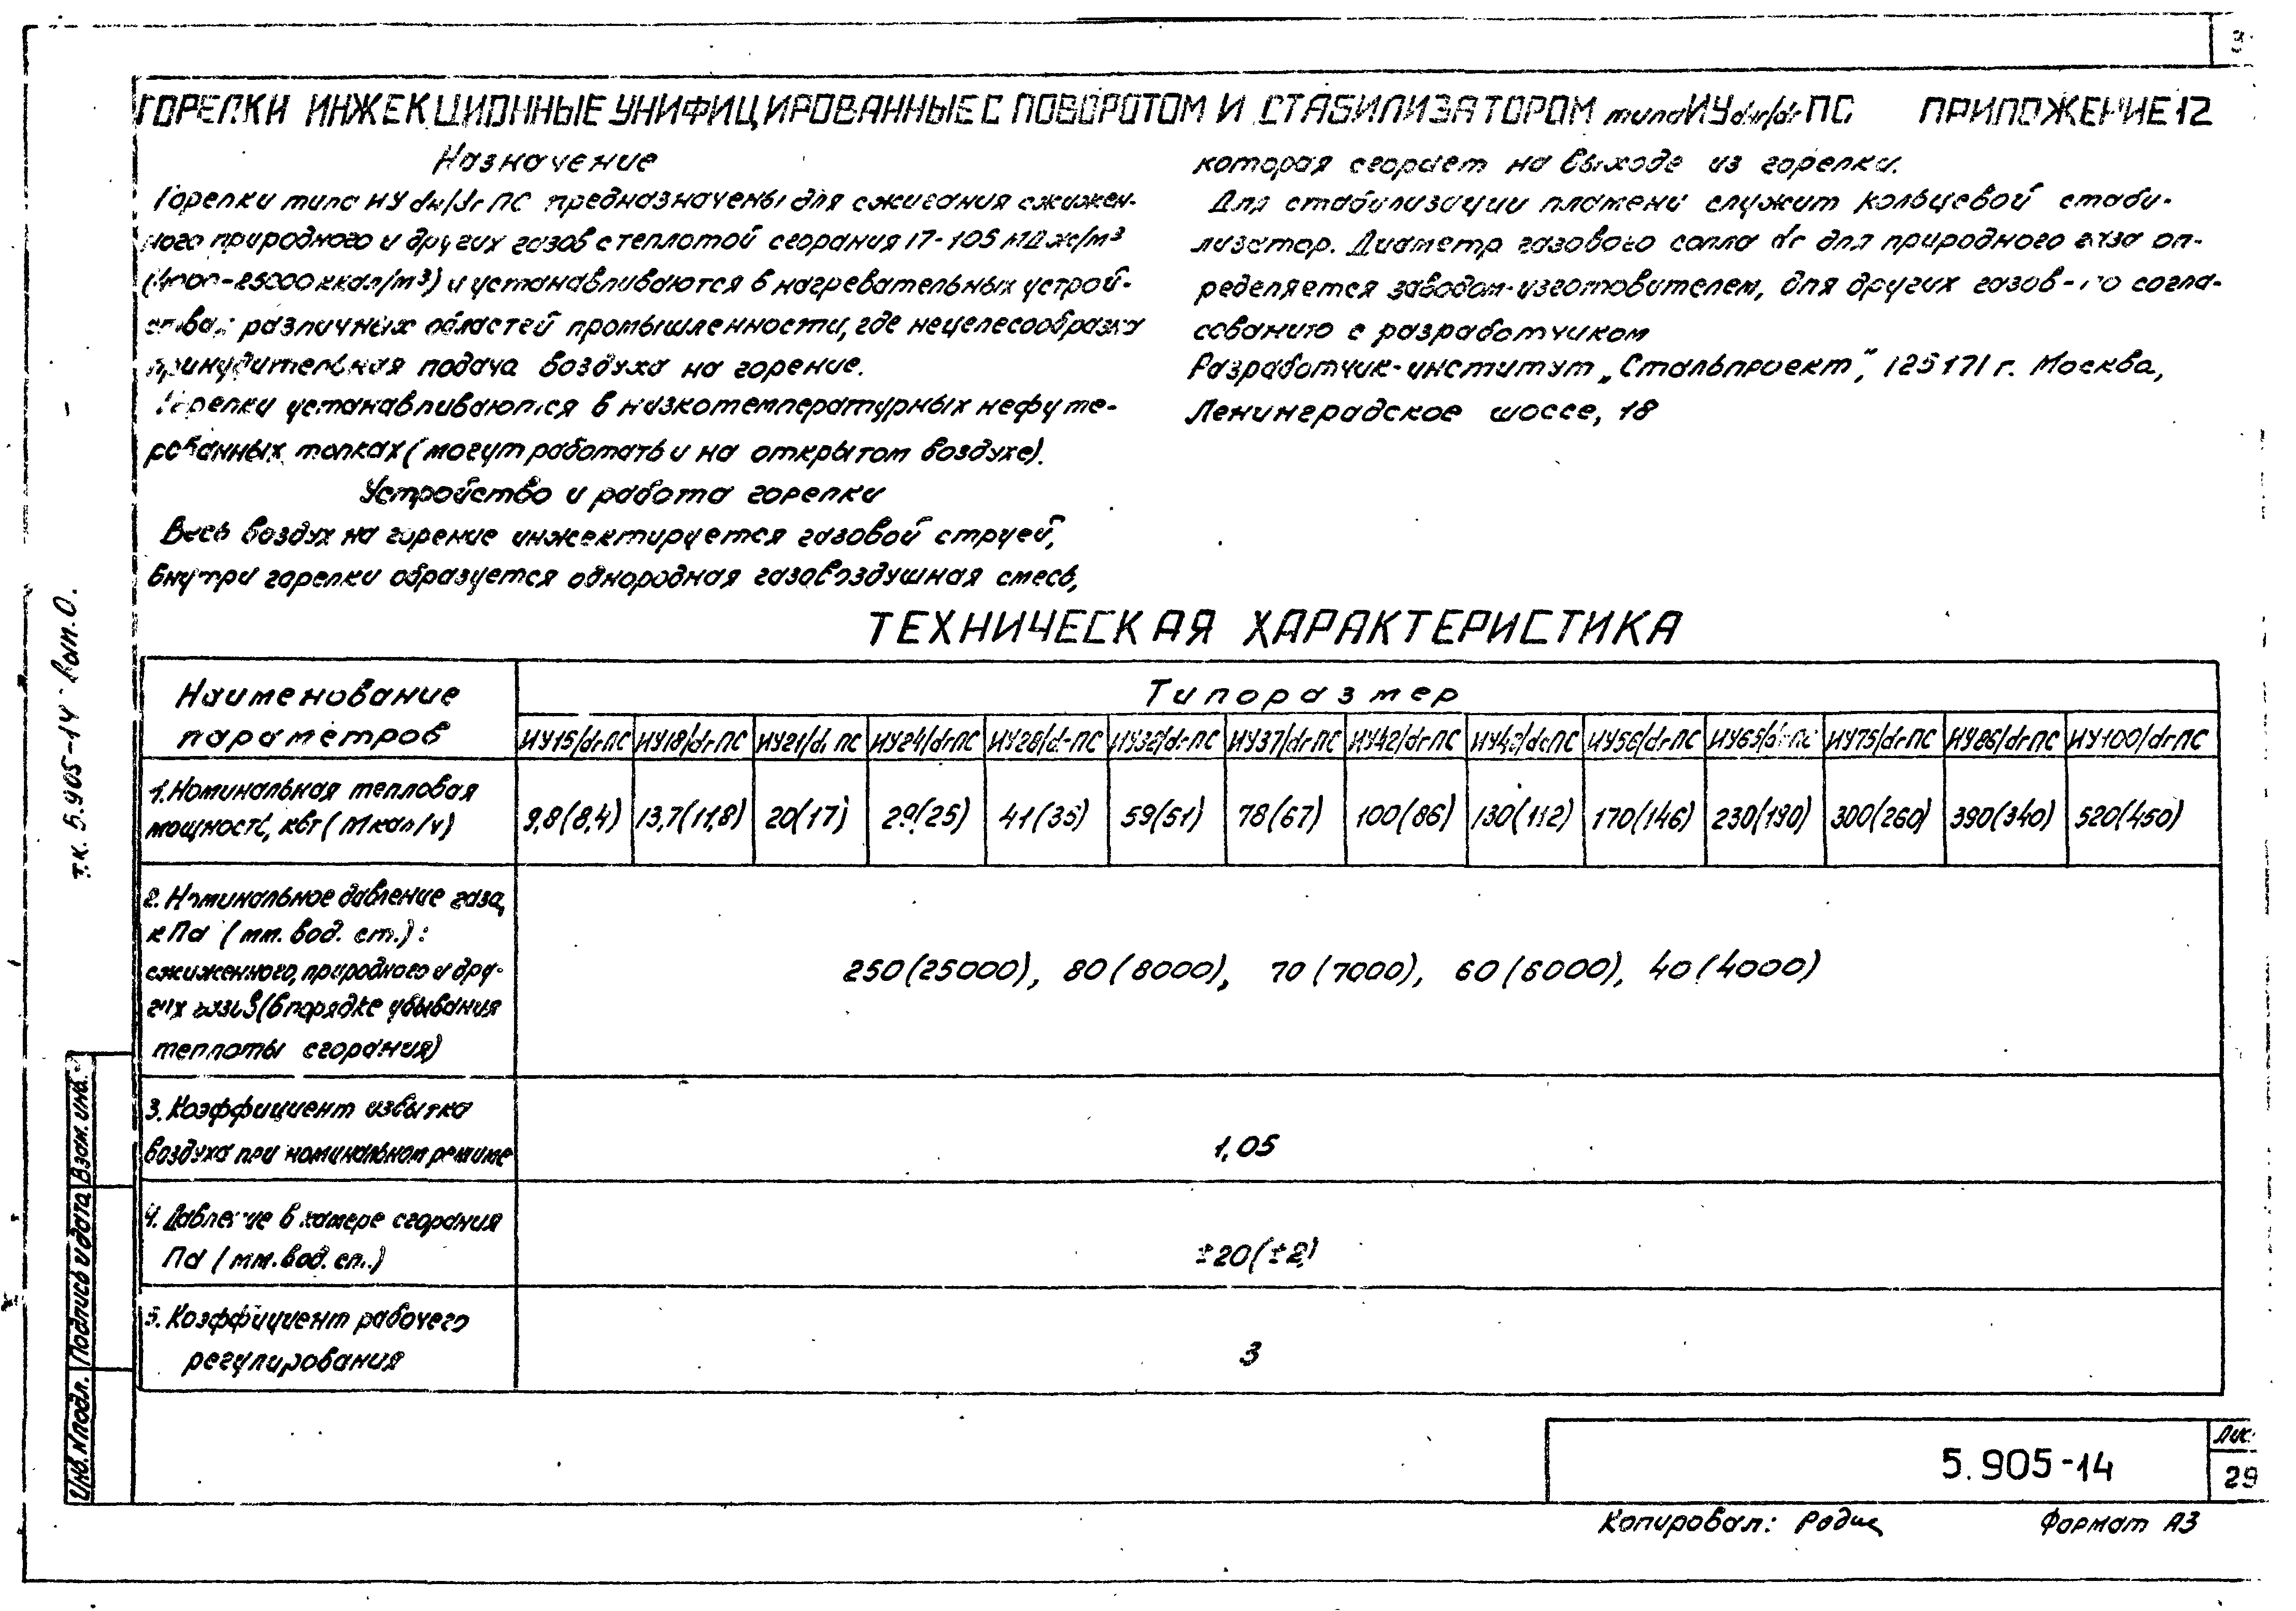 3
ГОРЕЛКИ ИНЖЕКЦИОННЫЕ УНИФИЦИРОВАННЫЕ С ПОВОРОТОМ И СТАБИЛИЗАТОРОМ типа ИУdн/dг ПС ПРИЛОЖЕНИЕ 12
Назначение
Горелки типа ИУ dн/dг ПС предназначены для сжигания сжижен-
ного природного и других газов с теплотой сгорания 17-105 МДж/м³
(4000-25000 ккал/м³) и устанавливаются в нагревательных устрой-
ствах различных областей промышленности, где нецелесообразна
принудительная подача воздуха на горение.
Горелки устанавливаются в низкотемпературных нефуте-
рованных топках (могут работать и на открытом воздухе).
Устройство и работа горелки
Весь воздух на горение инжектируется газовой струей,
внутри горелки образуется однородная газовоздушная смесь,
которая сгорает на выходе из горелки.
Для стабилизации пламени служит кольцевой стаби-
лизатор. Диаметр газового сопла dг для природного газа оп-
ределяется заводом-изготовителем, для других газов - по согла-
сованию с разработчиком
Разработчик-институт „Стальпроект", 125171 г. Москва,
Ленинградское шоссе, 18
ТЕХНИЧЕСКАЯ ХАРАКТЕРИСТИКА
Наименование параметров
Типоразмер
ИУ15/dгПС ИУ18/dгПС ИУ21/dгПС ИУ24/dгПС ИУ28/dгПС ИУ32/dгПС ИУ37/dгПС ИУ42/dгПС ИУ42/dгПС ИУ56/dгПС ИУ65/dгПС ИУ75/dгПС ИУ86/dгПС ИУ100/dгПС
1. Номинальная тепловая
мощность, кВт (Мкал/ч)
9,8(8,4) 13,7(11,8) 20(17) 29(25) 41(35) 59(51) 78(67) 100(86) 130(112) 170(146) 230(190) 300(260) 390(340) 520(450)
2. Номинальное давление газа,
кПа (мм. вод. ст.):
сжиженного, природного и дру-
гих газов (в порядке убывания
теплоты сгорания)
250(25000), 80(8000), 70(7000), 60(6000), 40(4000)
3. Коэффициент избытка
воздуха при номинальном режиме
1,05
4. Давление в камере сгорания
Па (мм. вод. ст.)
±20(±2)
5. Коэффициент рабочего
регулирования
3
т.к. 5.905-14 Вып.0.
Инв. № подл. Подпись и дата Взам. инв.
5.905-14
Лис
29
Копировал: Родис
Формат А3